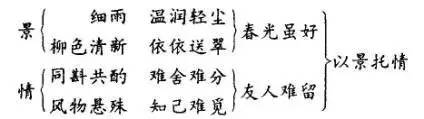 景 细雨 温润轻尘
柳色清新 依依送翠
春光虽好
情 同斟共酌 难舍难分
风物悬殊 知己难觅
友人难留
以景托情